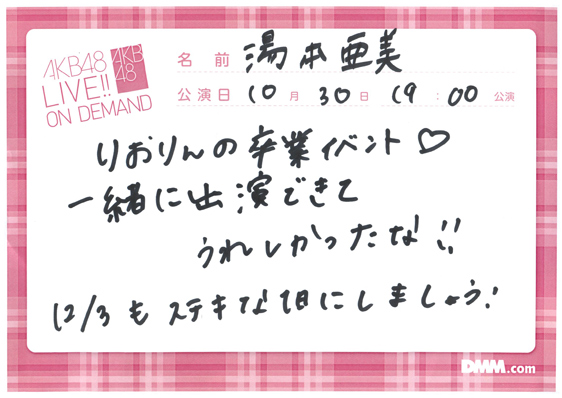 AKB48
LIVE!!
ON DEMAND
AKB
48
名前 湯本亜美
公演日 10月30日 19:00公演
りおりんの卒業イベント♡
一緒に出演できて
うれしかったな!!
12/3もステキな1日にしましょう!
DMM.com